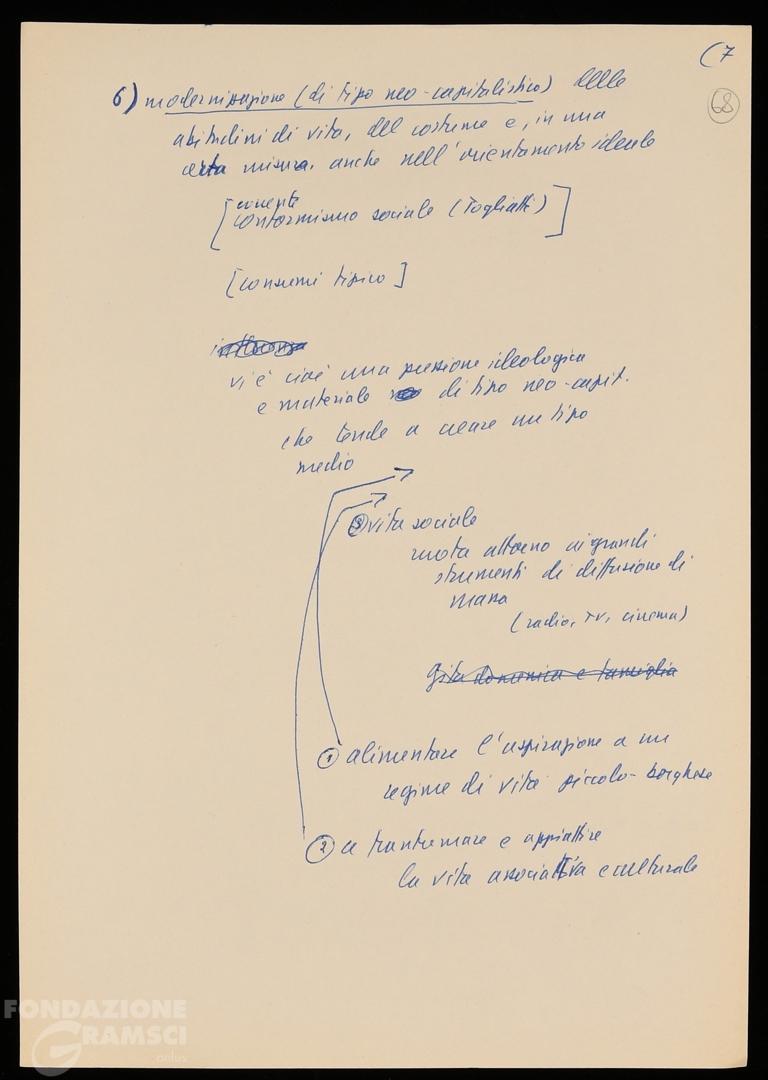 (7
68
6) modernizzazione (di tipo neo-capitalistico) delle
abitudini di vita, del costume e, in una
certa misura, anche nell'orientamento ideale
[corrente
conformismo sociale (Togliatti)]
[consumi tipico]
influenza
vi è cioè una pressione ideologica
e materiale di tipo neo-capit.
che tende a creare un tipo
medio
3 vita sociale
ruota attorno ai grandi
strumenti di diffusione di
massa
(radio, TV, cinema)
Gita domenica e famiglia
1 alimentare l'aspirazione a un
regime di vita piccolo-borghese
2 a frantumare e appiattire
la vita associativa e culturale
FONDAZIONE
GRAMSCI
onlus